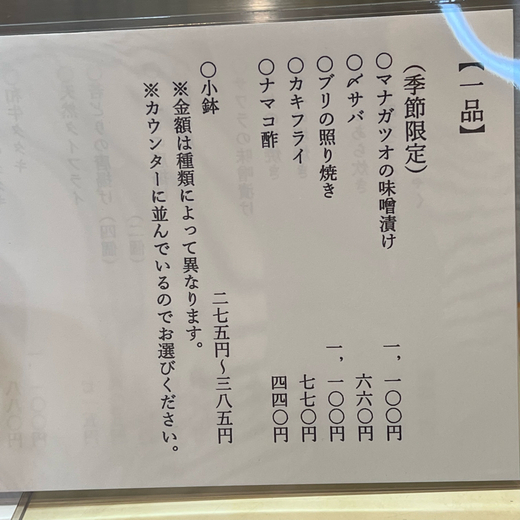 【一品】
（季節限定）
○マナガツオの味噌漬け 一、一〇〇円
○〆サバ 六六〇円
○ブリの照り焼き 一、一〇〇円
○カキフライ 七七〇円
○ナマコ酢 四四〇円
○小鉢 二七五円～三八五円
※金額は種類によって異なります。
※カウンターに並んでいるのでお選びください。